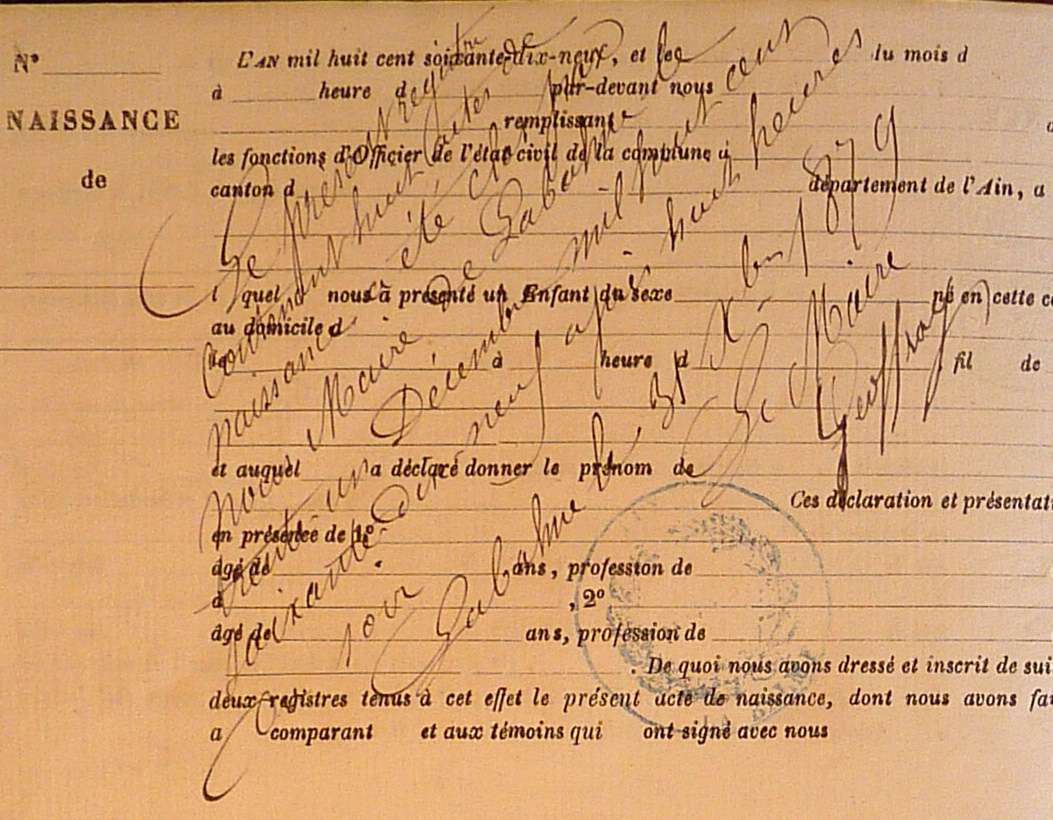 N°
NAISSANCE
de
L'AN mil huit cent soixante-dix-neuf, et le du mois d
à heure d par-devant nous
remplissant
les fonctions d'Officier de l'état civil de la commune d
canton d département de l'Ain, a
l quel nous a présenté un Enfant du sexe né en cette co
au domicile d
le à heure d fil de
et auquel a déclaré donner le prénom de
Ces déclaration et présentat
en présence de 1°
âgé de ans, profession de
d , 2°
âgé de ans, profession de
. De quoi nous avons dressé et inscrit de sui
deux registres tenus à cet effet le présent acte de naissance, dont nous avons fai
a comparant et aux témoins qui ont signé avec nous
Le présent registre
contenant huit actes de
naissance a été clos par
Nous Maire de Labalme le
trente-un Décembre mil huit cent
soixante-dix neuf après huit heures
soir
Labalme le 31 Xbre 1879
Le Maire
Geoffray